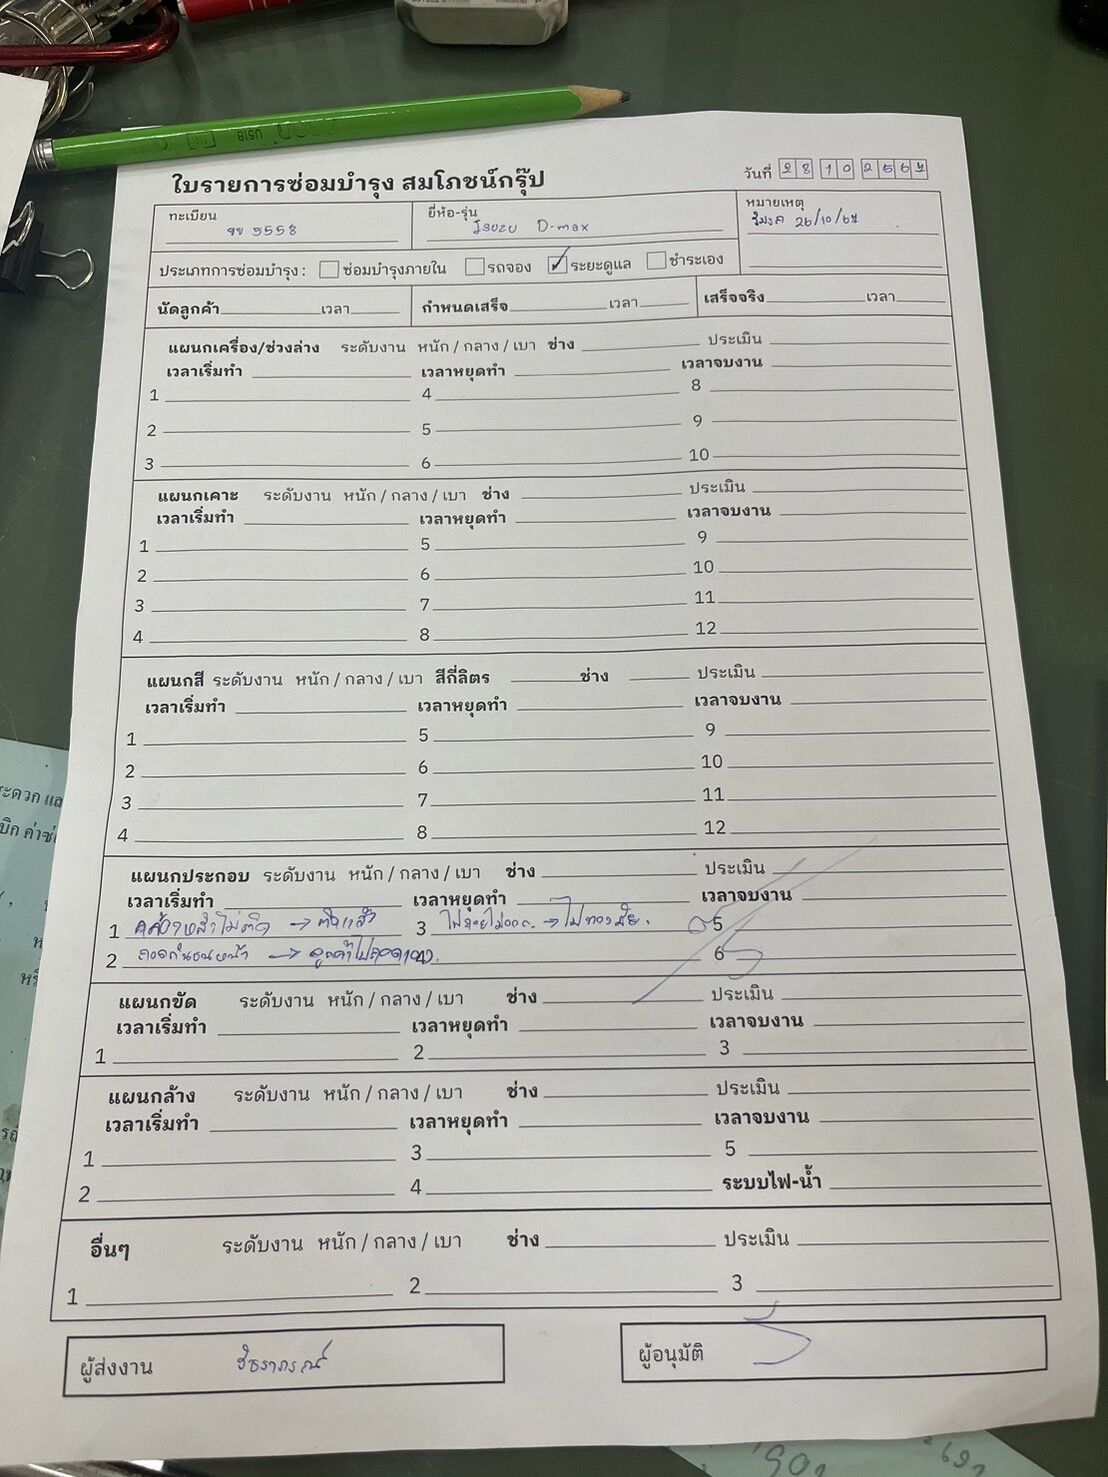 ใบรายการซ่อมบำรุง สมโภชน์กรุ๊ป
วันที่ 28 10 2567
ทะเบียน 5558
ยี่ห้อ-รุ่น Isuzu D-max
หมายเหตุ
26/10/67
ประเภทการซ่อมบำรุง : ซ่อมบำรุงภายใน รถจอง ✓ ระยะดูแล ชำระเอง
นัดลูกค้า เวลา กำหนดเสร็จ เวลา เสร็จจริง เวลา
แผนกเครื่อง/ช่วงล่าง ระดับงาน หนัก / กลาง / เบา ช่าง ประเมิน
เวลาเริ่มทำ เวลาหยุดทำ เวลาจบงาน
1 4 8
2 5 9
3 6 10
แผนกเคาะ ระดับงาน หนัก / กลาง / เบา ช่าง ประเมิน
เวลาเริ่มทำ เวลาหยุดทำ เวลาจบงาน
1 5 9
2 6 10
3 7 11
4 8 12
แผนกสี ระดับงาน หนัก / กลาง / เบา สีกี่ลิตร ช่าง ประเมิน
เวลาเริ่มทำ เวลาหยุดทำ เวลาจบงาน
1 5 9
2 6 10
3 7 11
4 8 12
แผนกประกอบ ระดับงาน หนัก / กลาง / เบา ช่าง ประเมิน
เวลาเริ่มทำ เวลาหยุดทำ เวลาจบงาน
1 ไม่ติด → 3 → 5
2 กันชนหน้า → ลูกค้าไป 4 6
แผนกขัด ระดับงาน หนัก / กลาง / เบา ช่าง ประเมิน
เวลาเริ่มทำ เวลาหยุดทำ เวลาจบงาน
1 2 3
แผนกล้าง ระดับงาน หนัก / กลาง / เบา ช่าง ประเมิน
เวลาเริ่มทำ เวลาหยุดทำ เวลาจบงาน
1 3 5
2 4 ระบบไฟ-น้ำ
อื่นๆ ระดับงาน หนัก / กลาง / เบา ช่าง ประเมิน
1 2 3
ผู้ส่งงาน
ผู้อนุมัติ